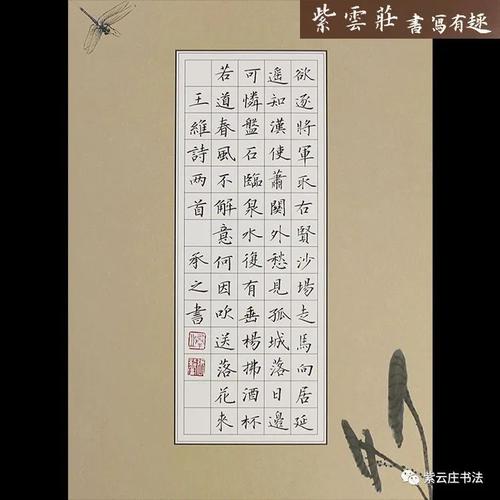 紫雲莊 書寫有趣
欲逐將軍取右賢沙場走馬向居延
遥知漢使蕭關外愁見孤城落日邊
可憐盤石臨泉水復有垂楊拂酒杯
若道春風不解意何因吹送落花來
王維詩两首 承之書
紫云庄书法